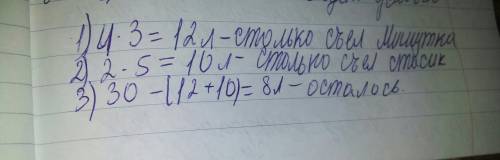 1) 4 · 3 = 12л - столько съел Мишутка
2) 2 · 5 = 10л - столько съел стасик
3) 30 - (12 + 10) = 8л - осталось.